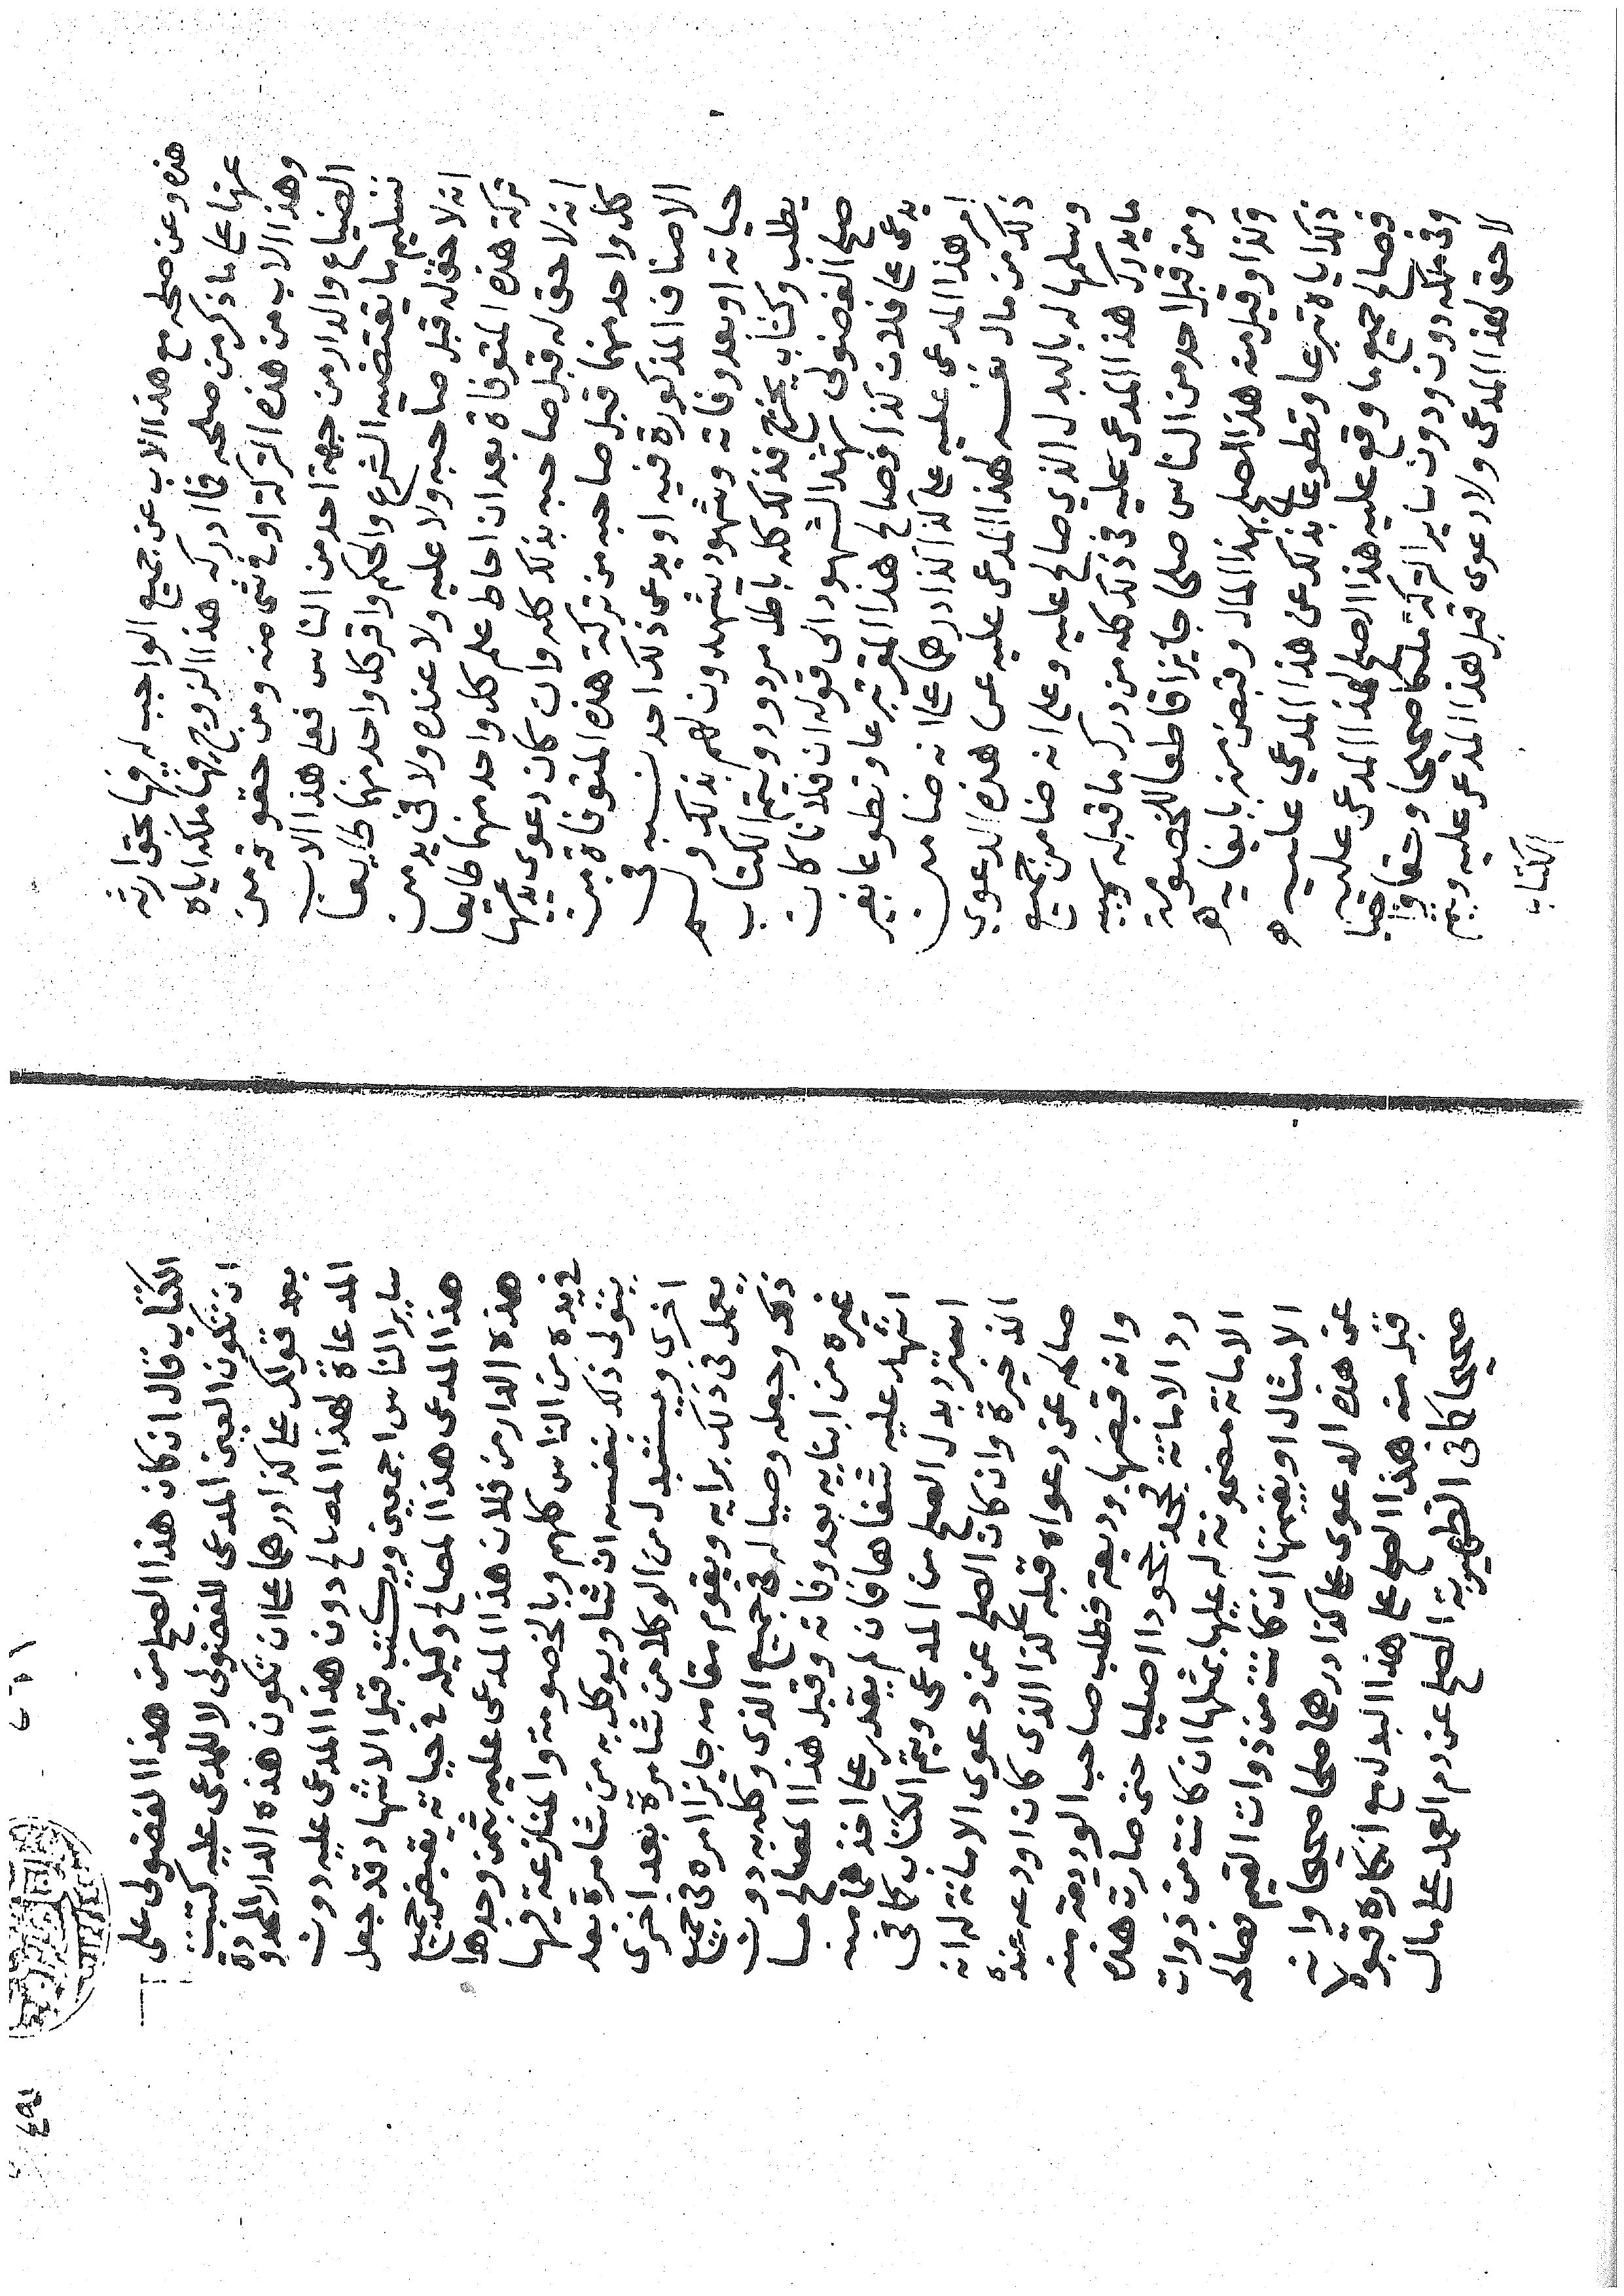 هذه وعن صلحه مع هذا الاب عن جميع الواجب له فيها بحق ارثه
عنها على ما ذكر من صلحه فما ادركه هذا الزوج فيما ملكه اياه
وهذا الاب من هذه التركة او في شئ منه ومن حقوقه من
الضياع والدار من جهة احد من الناس فعلى هذا الاب
تسليم ما يقتضيه الشرع والحكم واقر كل واحد منهما طايعا
انه لا حق له قبل صاحبه ولا عليه ولا عنده ولا في يده من
تركة هذه المتوفاة بعد ان احاط علم كل واحد منهما طايعا
انه لا حق له قبل صاحبه بذلك كله وان كان دعوى يدعيها
كل واحد منهما قبل صاحبه من تركة هذه المتوفاة من
الاصناف المذكورة فيه او يدعى ذلك احد بسببه في
حياته او بعد وفاته وشهود يشهدون لهم بذلك و
يطلب وكتاب يخرج فذلك كله باطل مردود ويتم الكتاب
صلح الفضولى شهد الشهود الى قوله ان فلانا كان
يدعى على فلان كذا فصالح هذا المقر تبرعا وتطوعا بغير
امر هذا المدعى عليه على كذا كذا درهما على انه ضامن
ذلك من مال نفسه لهذا المدعى عليه عن هذه الدعوى
وسلمها له بالبدل الذي صالح عليه وعلى انه ضامن جميع
ما يدرك هذا المدعى عليه في ذلك كله من درك ما قبله وسببه
ومن قبل احد من الناس صلحا جايزا قاطعا للخصومة
وقبل منه هذا الصلح بهذا المال وقبض منه بايفايه
ذلك اياه تبرعا وتطوعا بذلك عن هذا المدعي عليه
فصالح جميع ما وقع عليه هذا الصلح لهذا المدعى عليه
وفي ملكه دون سایر التركة ملكا صحيحا وحقا واجبا
لا حق لهذا المدعى ولا دعوى قبل هذا المدعى عليه ويتم
الكتاب
الكتاب قال ان كان هذا الصلح من هذا الفضولى على
ان تكون العين المدعى للفضولى لا للمدعى عليه كتبت
بعد قولك على كذا درهما على ان تكون هذه الدار المحدودة
المدعاة لهذا المصالح دون هذا المدعى عليه دون
ساير الناس اجمعين ويكتب قبل الاشهاد قد جعل
هذا المدعى هذا المصالح وكيله في حياته بقبض جميع
هذه الدار من فلان هذا المدعى عليه بثمن وحدها
في يده من الناس كلهم وبالخصومة والمنازعة فيها
يتولى ذلك بنفسه ان شا ويوكل به من شا مرة بعد
اخرى ويستبدل من الوكلا من شا مرة بعد اخرى
يعمل في ذلك برايه ويقوم مقامه جايزا امره في جميع
ذلك وجعله وصيا له في جميع الذى وكله به دون
غيره من ابنايه بعد وفاته وقبل هذا المصالح ما
اشهد عليه شفاها فان لم يقدر على اخذها منه
استرد بدل الصلح من المدعى ويتم الكتاب كما في
الذخيرة وان كان الصلح عن دعوى الامانة له انه
صالحه عن دعواه قبله كذا الذى كان اودعه عنده
وانه قبضها وديعة فطلب صاحب الوديعة منه
رد الامانة فجحد جحودا اصليا حتى صارت هذه
الامانة مضمونة له عليها بمثلها ان كانت من ذوات
الامثال او بقيمتها ان كانت من ذوات القيم فصالحه
عن هذه الدعوى على كذا درهما صلحا صحيحا وانه
قبل منه هذا الصلح على هذا البدل مع انكاره قبولا
صحيحا كما في الظهيرية الصلح عن دم العمد على مال